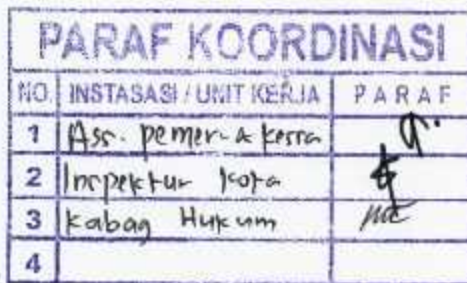 PARAF KOORDINASI
NO. INSTASASI / UNIT KERJA PARAF
1 Ass. pemer-a kesra
2 Inspektur Kota
3 Kabag Hukum
4